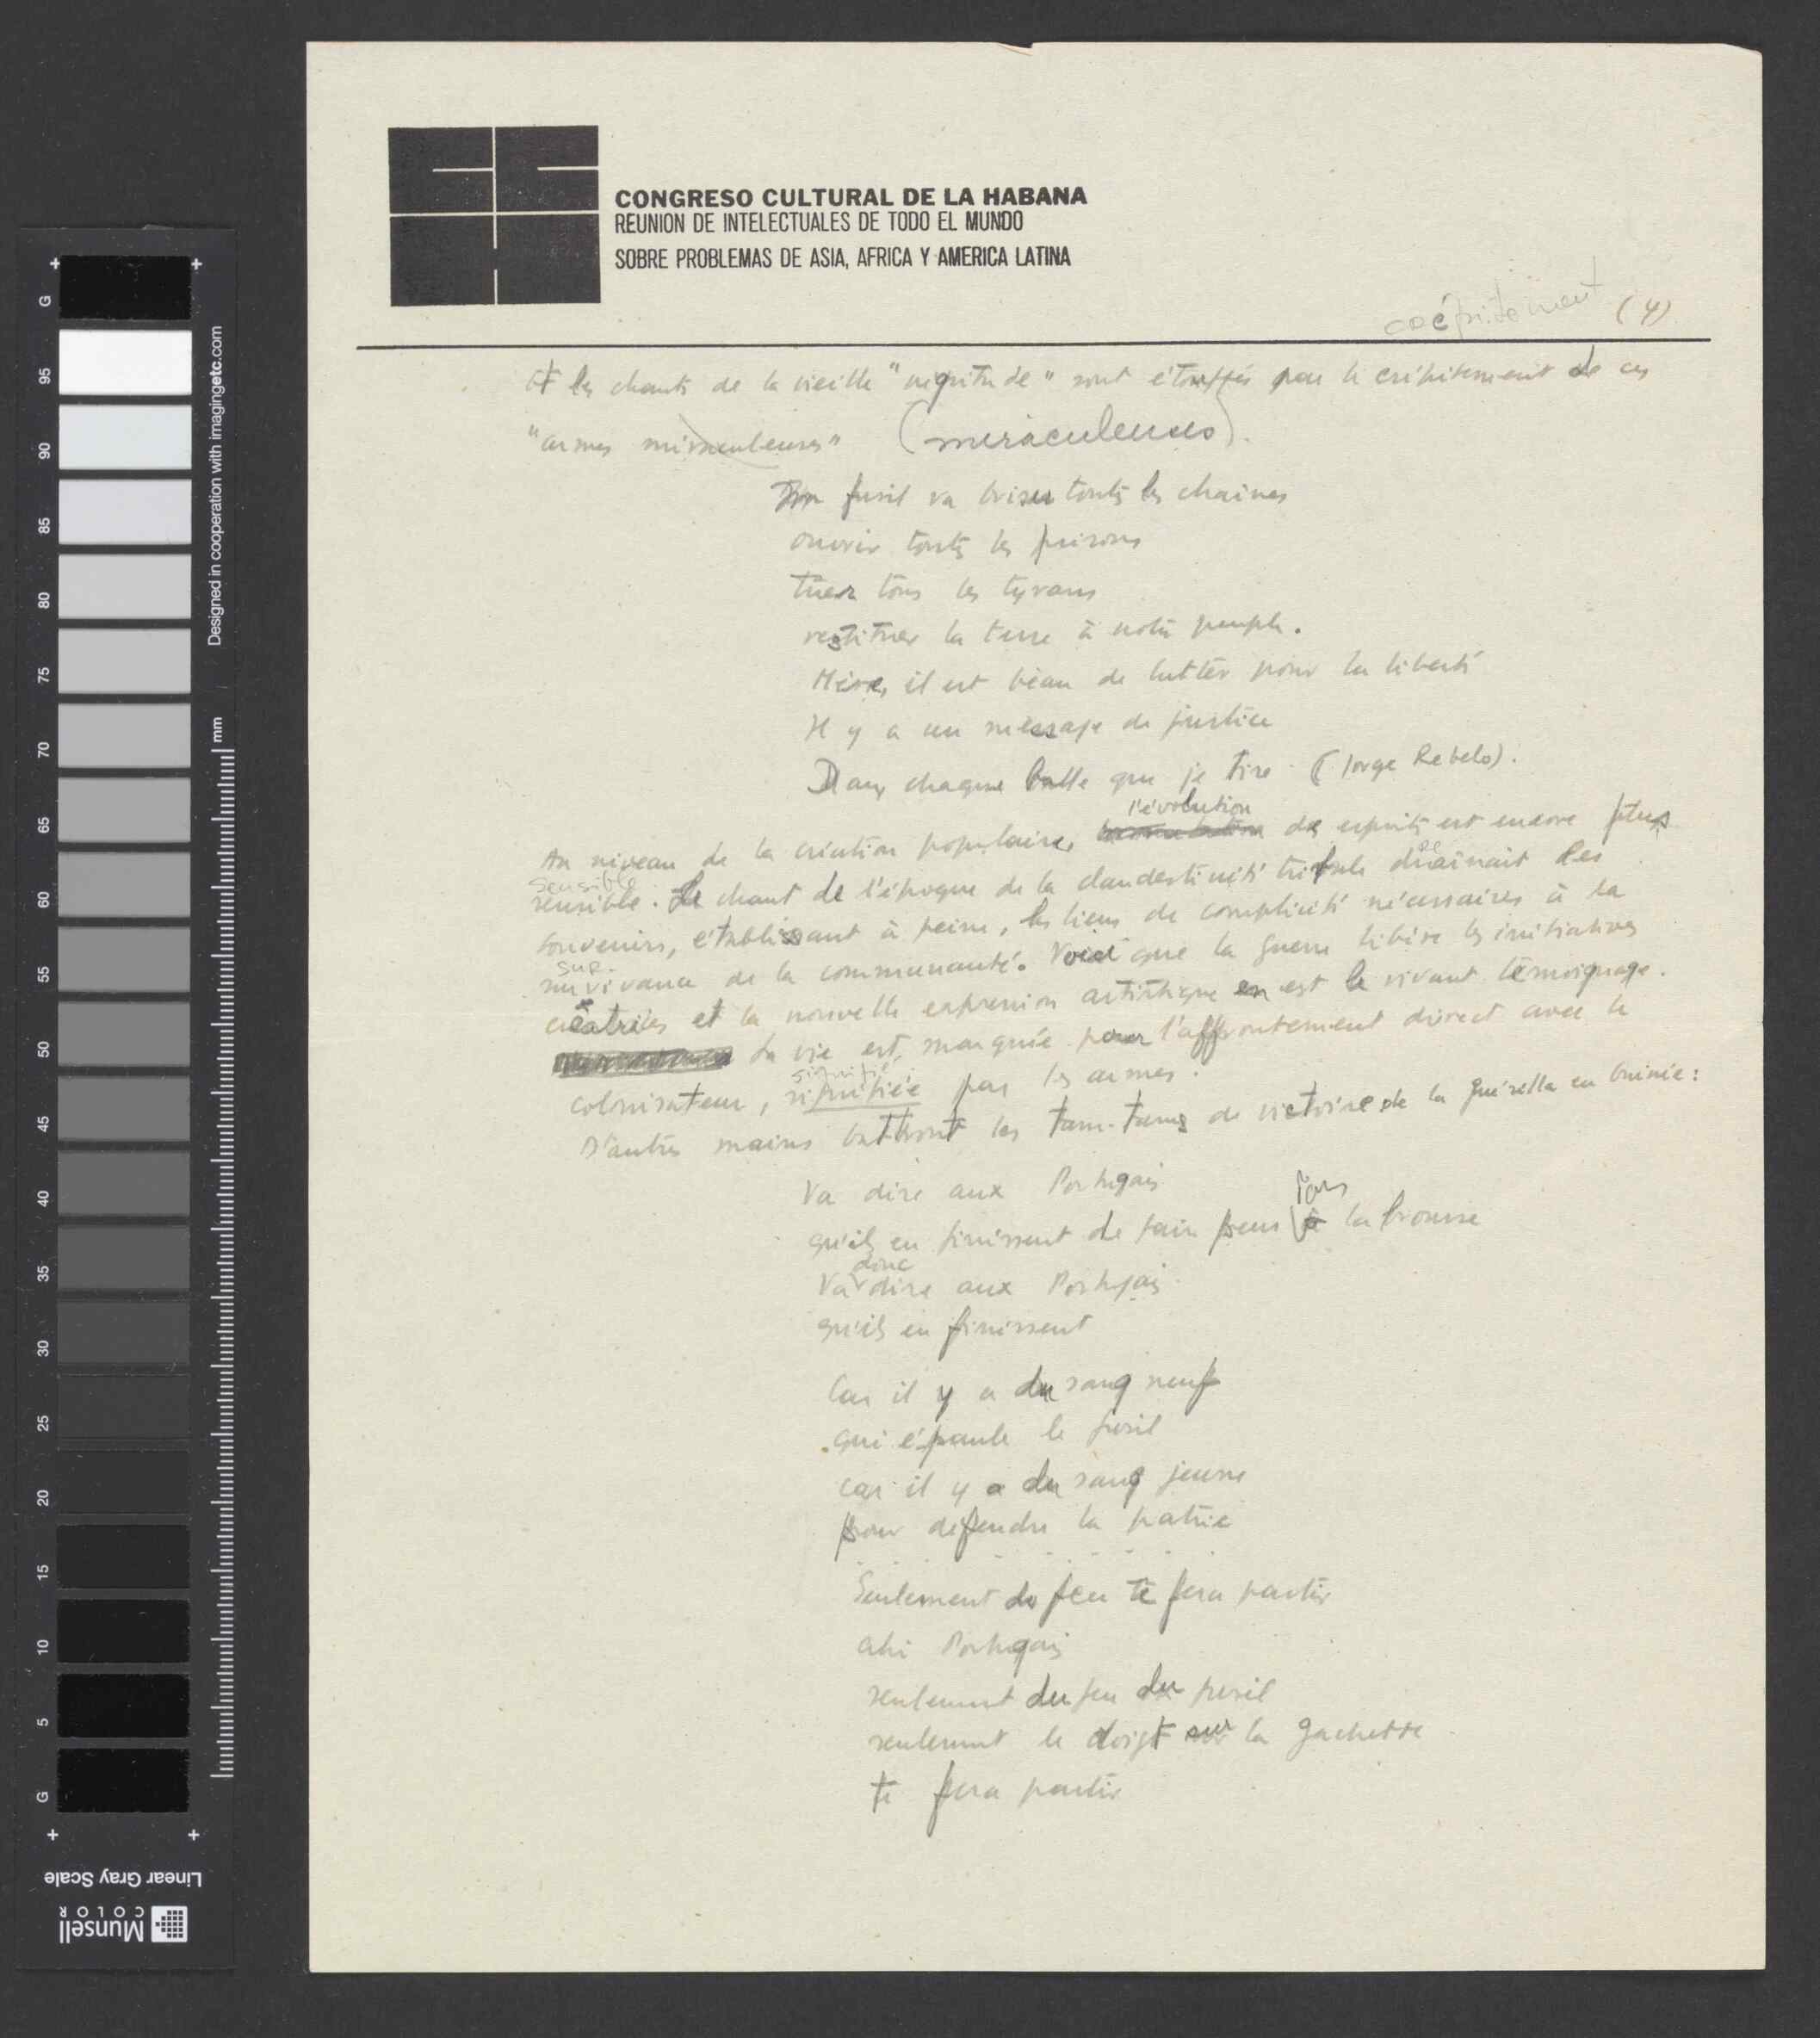 CONGRESO CULTURAL DE LA HABANA
REUNION DE INTELECTUALES DE TODO EL MUNDO
SOBRE PROBLEMAS DE ASIA, AFRICA Y AMERICA LATINA
(4)
Et les chants de la vieille "négritude" sont étouffés par le crépitement de ces
"armes miraculeuses" (miraculeuses).
Mon fusil va briser toutes les chaînes
ouvrir toutes les prisons
tuer tous les tyrans
restituer la terre à notre peuple.
Mère, il est beau de lutter pour la liberté
Il y a un message de justice
Dans chaque balle que je tire (Jorge Rebelo).
l'évolution
Au niveau de la création populaire, des esprits est encore plus
sensible
sensible. Le chant de l'époque de la clandestinité tribale drainait des
souvenirs, établissant à peine, les liens de complicité nécessaires à la
sur-
survivance de la communauté. Voici que la guerre libère les initiatives
créatrices et la nouvelle expression artistique en est le vivant témoignage.
La vie est marquée par l'affrontement direct avec le
signifiée
colonisateur, signifiée par les armes.
D'autres mains battront les tam-tams de victoire de la guérilla en Guinée:
Va dire aux Portugais
dans
qu'ils en finissent de faire peur à la brousse
donc
Va dire aux Portugais
qu'ils en finissent
Car il y a du sang neuf
qui épaule le fusil
car il y a du sang jeune
pour défendre la patrie
- - - - - - - -
Seulement du feu te fera partir
ahi Portugais
seulement du feu du fusil
seulement le doigt sur la gachette
te fera partir
G 95 90 85 80 75 70 65 60 55 50 45 40 35 30 25 20 15 10 5 G
mm
Designed in cooperation with imagingetc.com
Linear Gray Scale
Munsell
COLOR